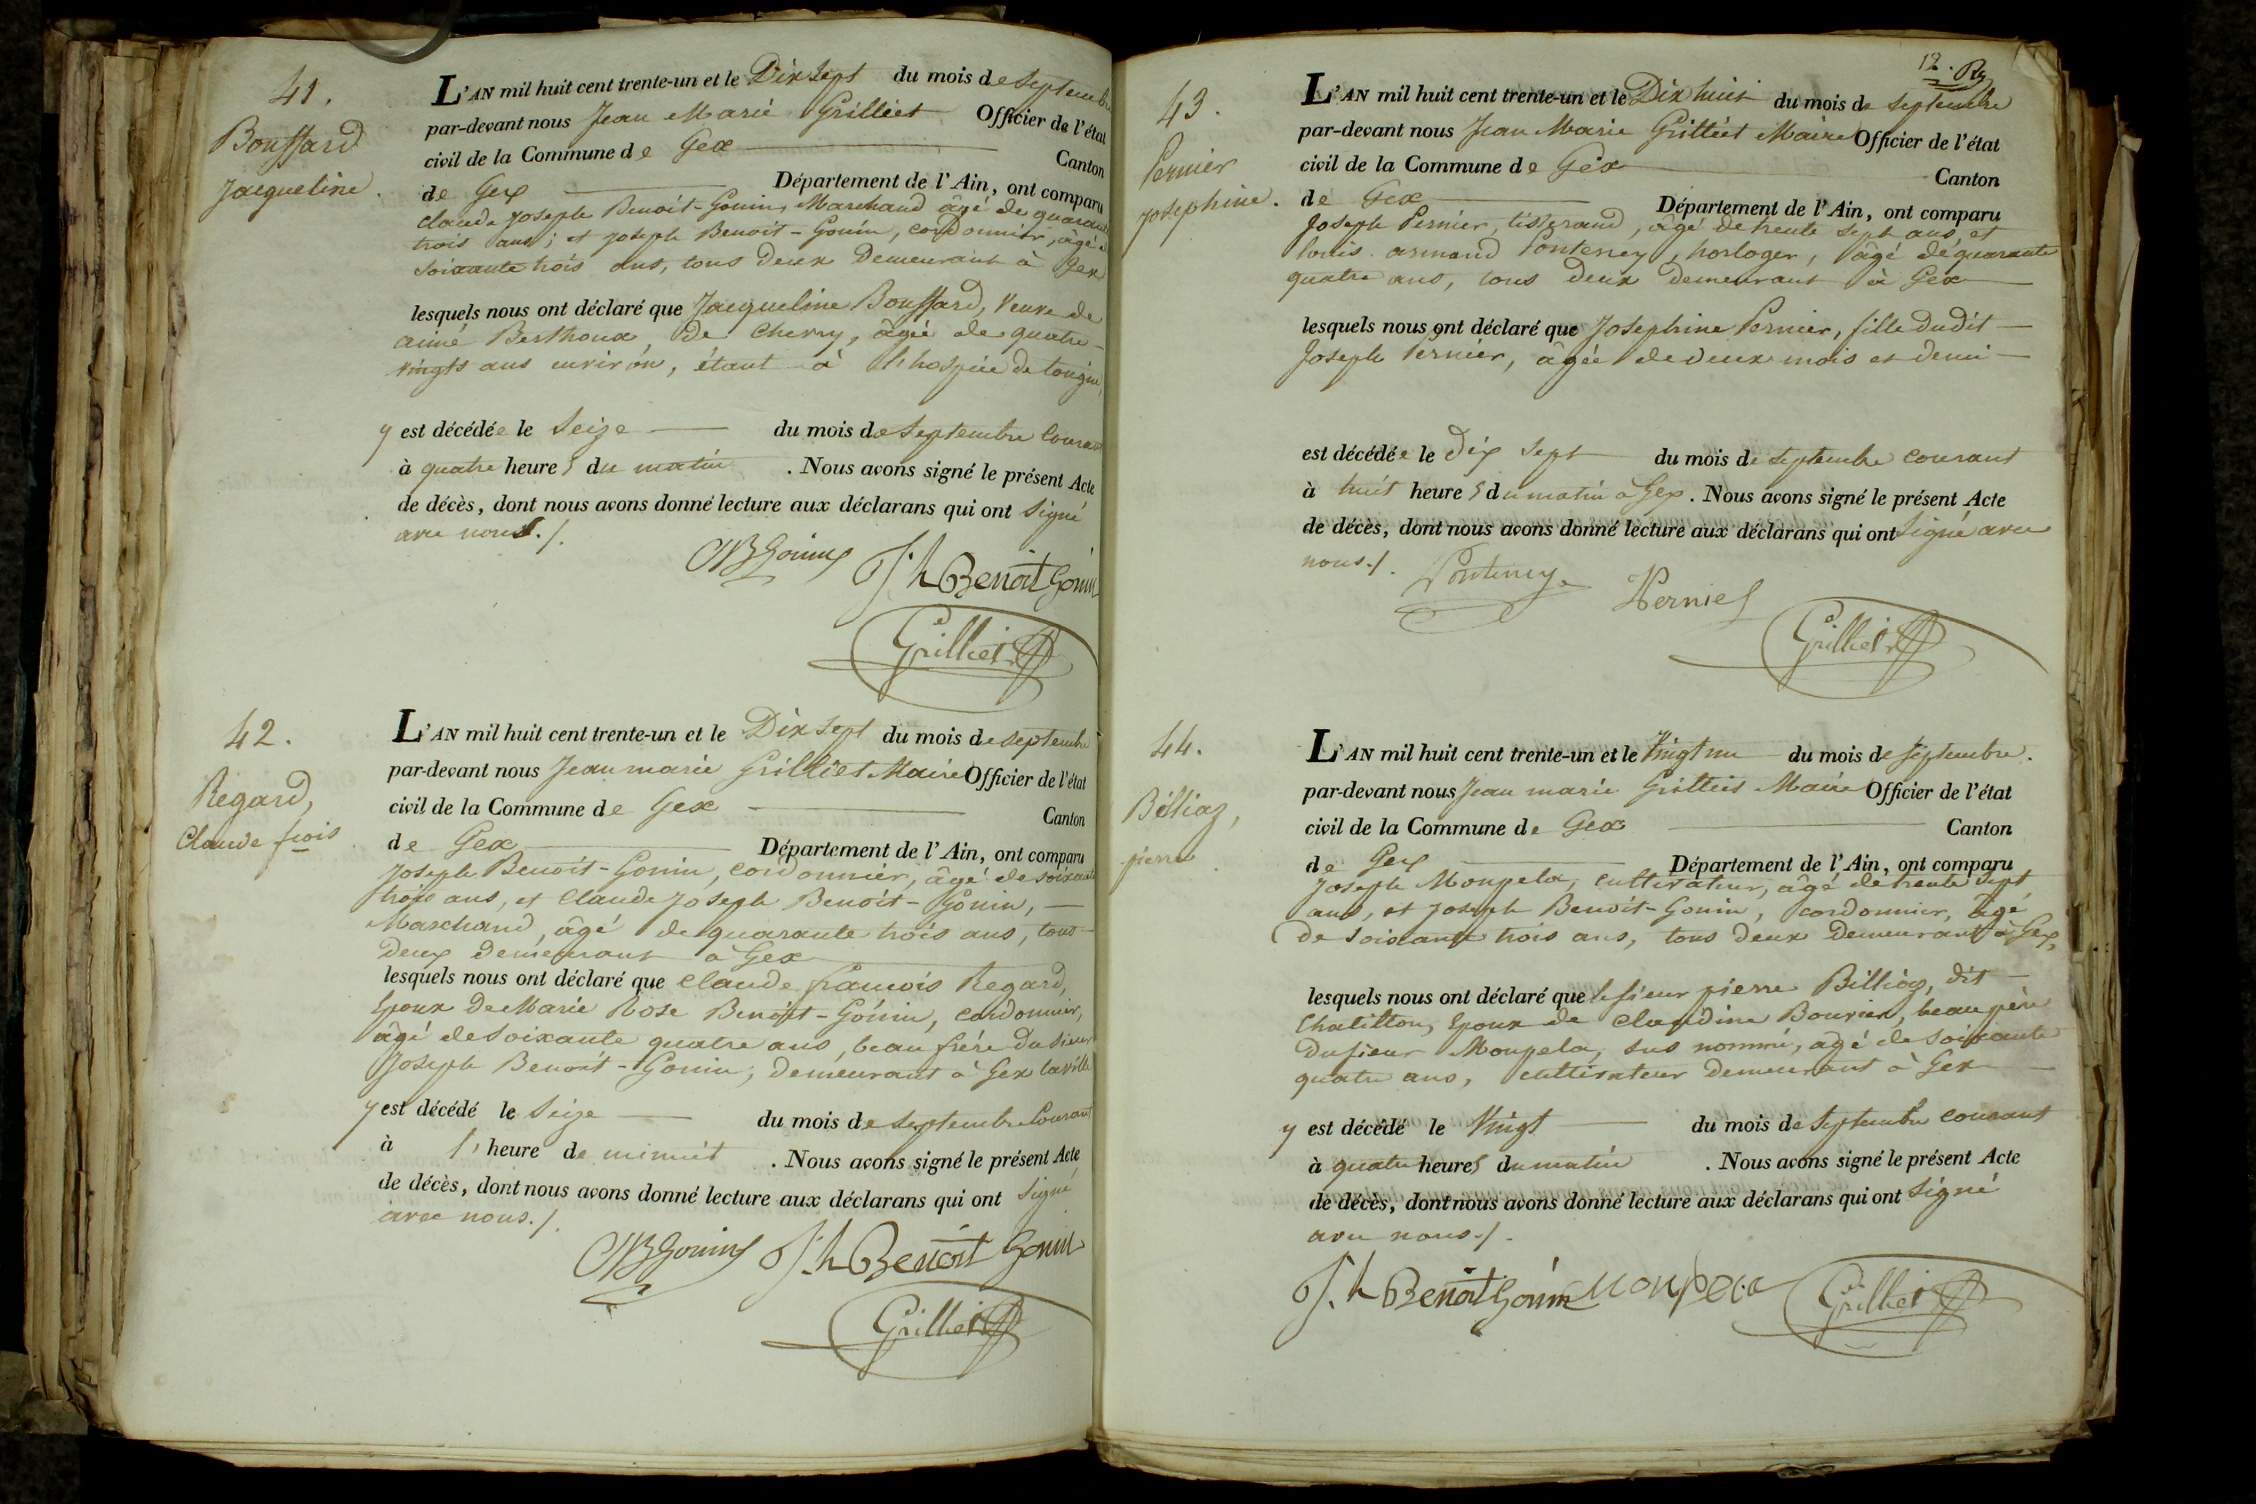 41.
Bouffard
Jacqueline.
L'AN mil huit cent trente-un et le Dix sept du mois de septembre
par-devant nous Jean Marie Grilliet Officier de l'état
civil de la Commune de Gex Canton
de Gex Département de l'Ain, ont comparu
Claude Joseph Benoit-Gonin, Marchand âgé de quarante
trois ans; et Joseph Benoit-Gonin, cordonnier, âgé de
soixante trois ans, tous deux Demeurant à Gex
lesquels nous ont déclaré que Jacqueline Bouffard, Veuve de
aimé Berthoux, De Chevry, âgée de quatre-
vingts ans environ, étant à l'hospice de tougin,
y est décédée le Seize du mois de Septembre Courant
à quatre heures du matin . Nous avons signé le présent Acte
de décès, dont nous avons donné lecture aux déclarans qui ont signé
avec nous./.
Jh Benoit Gonin
Grilliet
42.
Regard,
Claude fcois
L'AN mil huit cent trente-un et le Dix sept du mois de septembre
par-devant nous Jean marie Grilliet Maire Officier de l'état
civil de la Commune de Gex Canton
de Gex Département de l'Ain, ont comparu
Joseph Benoit-Gonin, cordonnier, âgé de soixante
trois ans, et Claude Joseph Benoit-Gonin,
Marchand, âgé de quarante trois ans, tous
Deux demeurant à Gex
lesquels nous ont déclaré que Claude francois Regard,
Epoux De Marie Rose Benoit-Gonin, cordonnier,
âgé de soixante quatre ans, beau frère du sieur
Joseph Benoit-Gonin, demeurant à Gex la ville
y est décédé le Seize du mois de septembre Courant
à l'heure de minuit . Nous avons signé le présent Acte
de décès, dont nous avons donné lecture aux déclarans qui ont signé
avec nous./.
Jh Benoit Gonin
Grilliet
12.
43.
Pernier
Josephine.
L'AN mil huit cent trente-un et le Dix huit du mois de septembre
par-devant nous Jean Marie Grilliet Maire Officier de l'état
civil de la Commune de Gex Canton
de Gex Département de l'Ain, ont comparu
Joseph Pernier, tisserand, âgé de trente sept ans, et
Louis armand Ponteney, horloger, âgé de quarante
quatre ans, tous deux demeurant à Gex
lesquels nous ont déclaré que Josephine Pernier, fille dudit
Joseph Pernier, âgée de deux mois et demi
est décédée le dix sept du mois de septembre courant
à huit heures du matin à Gex . Nous avons signé le présent Acte
de décès, dont nous avons donné lecture aux déclarans qui ont signé avec
nous./.
Ponteney
Pernier
Grilliet
44.
Billiaz,
pierre
L'AN mil huit cent trente-un et le Vingt un du mois de septembre.
par-devant nous Jean marie Grilliet Maire Officier de l'état
civil de la Commune de Gex Canton
de Gex Département de l'Ain, ont comparu
Joseph Monpela, cultivateur, âgé de trente sept
ans, et Joseph Benoit-Gonin, cordonnier, âgé
de soixante trois ans, tous deux Demeurant à Gex,
lesquels nous ont déclaré que le sieur pierre Billiaz, dit
Chatillon, Epoux de Claudine Bouvier, beau père
du sieur Monpela, sus nommé, âgé de soixante
quatre ans, cultivateur demeurant à Gex
y est décédé le Vingt du mois de septembre courant
à quatre heures du matin . Nous avons signé le présent Acte
de décès, dont nous avons donné lecture aux déclarans qui ont signé
avec nous./.
Jh Benoit Gonin Monpela
Grilliet